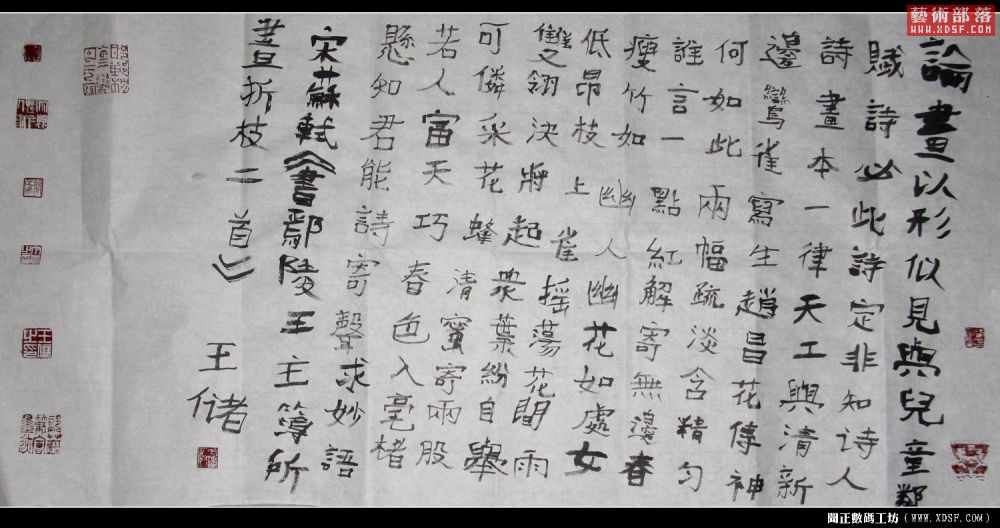 論畫以形似見與兒童鄰
賦詩必此詩定非知诗人
詩畫本一律天工與清新
邊鸞雀寫生趙昌花傳神
何如此兩幅疏淡含精匀
誰言一點紅解寄無邊春
瘦竹如幽人幽花如處女
低昂枝上雀摇蕩花間雨
雙翎決將起衆葉紛自舉
可憐采花蜂清蜜寄兩股
若人富天巧春色入毫楮
懸知君能詩寄聲求妙語
宋蘇軾《書鄢陵王主簿所
畫折枝二首》
王储
藝術部落
WWW.XDSF.COM
圓正數碼工坊(WWW.XDSF.COM)